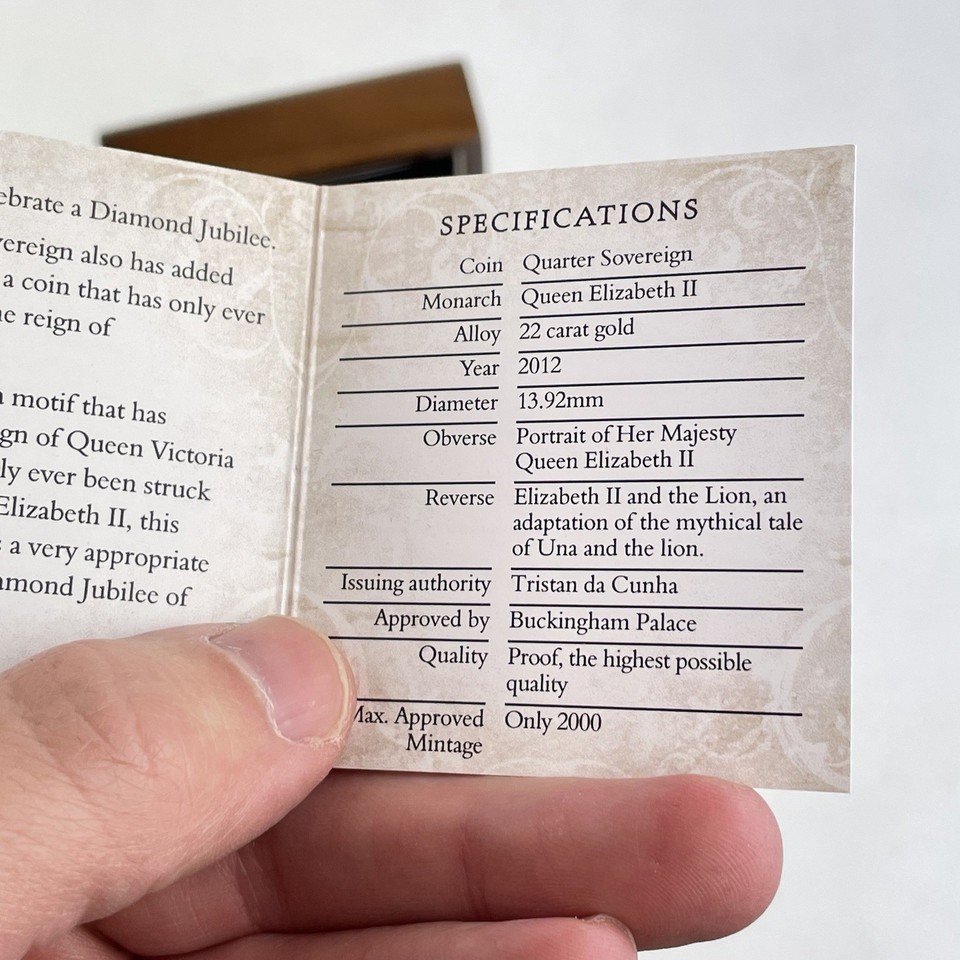 a Diamond Jubilee.
also has added
a coin that has only ever
reign of
motif that has
of Queen Victoria
ever been struck
Elizabeth II, this
a very appropriate
Jubilee of
SPECIFICATIONS
Coin Quarter Sovereign
Monarch Queen Elizabeth II
Alloy 22 carat gold
Year 2012
Diameter 13.92mm
Obverse Portrait of Her Majesty
Queen Elizabeth II
Reverse Elizabeth II and the Lion, an
adaptation of the mythical tale
of Una and the lion.
Issuing authority Tristan da Cunha
Approved by Buckingham Palace
Quality Proof, the highest possible
quality
Max. Approved Only 2000
Mintage